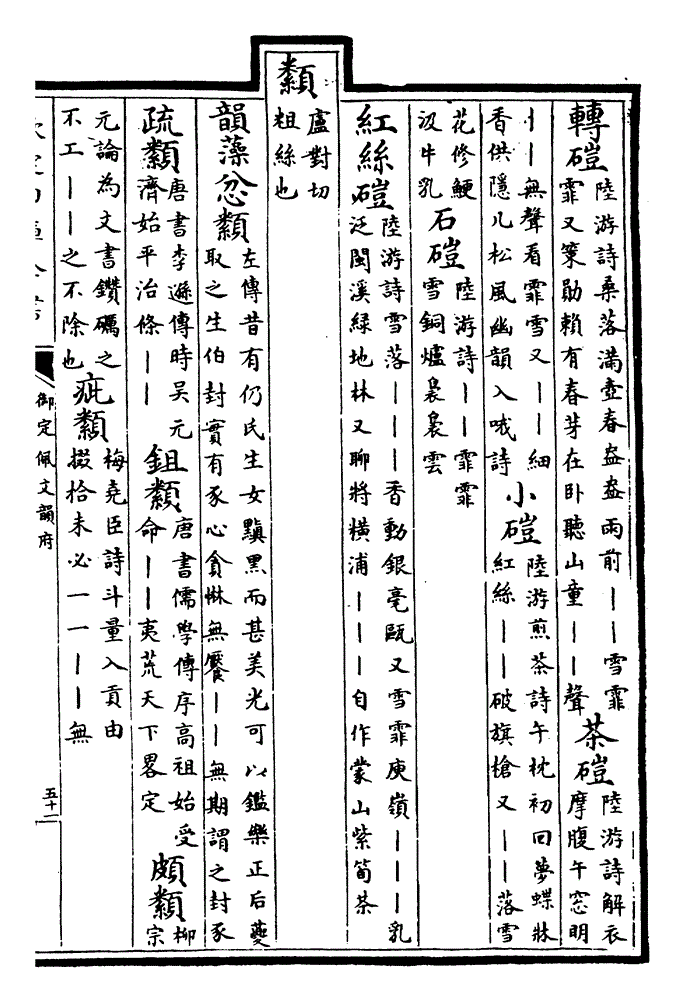 轉磑
陸游詩桑落滿壺春盎盎雨前丨丨雪霏
霏又策勛賴有春芽在卧聽山童丨丨聲
茶磑
陸游詩解衣
摩腹午窓明
丨丨無聲看霏雪又丨丨細
香供隱几松風幽韻入哦詩
小磑
陸游煎茶詩午枕初回夢蝶牀
紅絲丨丨破旗槍又丨丨落雪
花修鯁
汲牛乳
石磑
陸游詩丨丨霏霏
雪銅爐裊裊雲
紅絲磑
陸游詩雪落丨丨丨香動銀毫甌又雪霏庾嶺丨丨丨乳
泛閩溪緑地林又聊將横浦丨丨丨自作蒙山紫筍茶
纇
盧對切
粗絲也
韻藻忿纇
左傳昔有仍氏生女黰黑而甚美光可以鑑樂正后夔
取之生伯封實有豕心貪惏無饜丨丨無期謂之封豕
疏纇
唐書李遜傳時吴元
濟始平治條丨丨
鉏纇
唐書儒學傳序高祖始受
命丨丨夷荒天下畧定
頗纇
柳
宗
元論為文書鑽礪之
不工丨丨之不除也
疵纇
梅堯臣詩斗量入貢由
掇拾未必一一丨丨無
御定佩文韻府
五十一